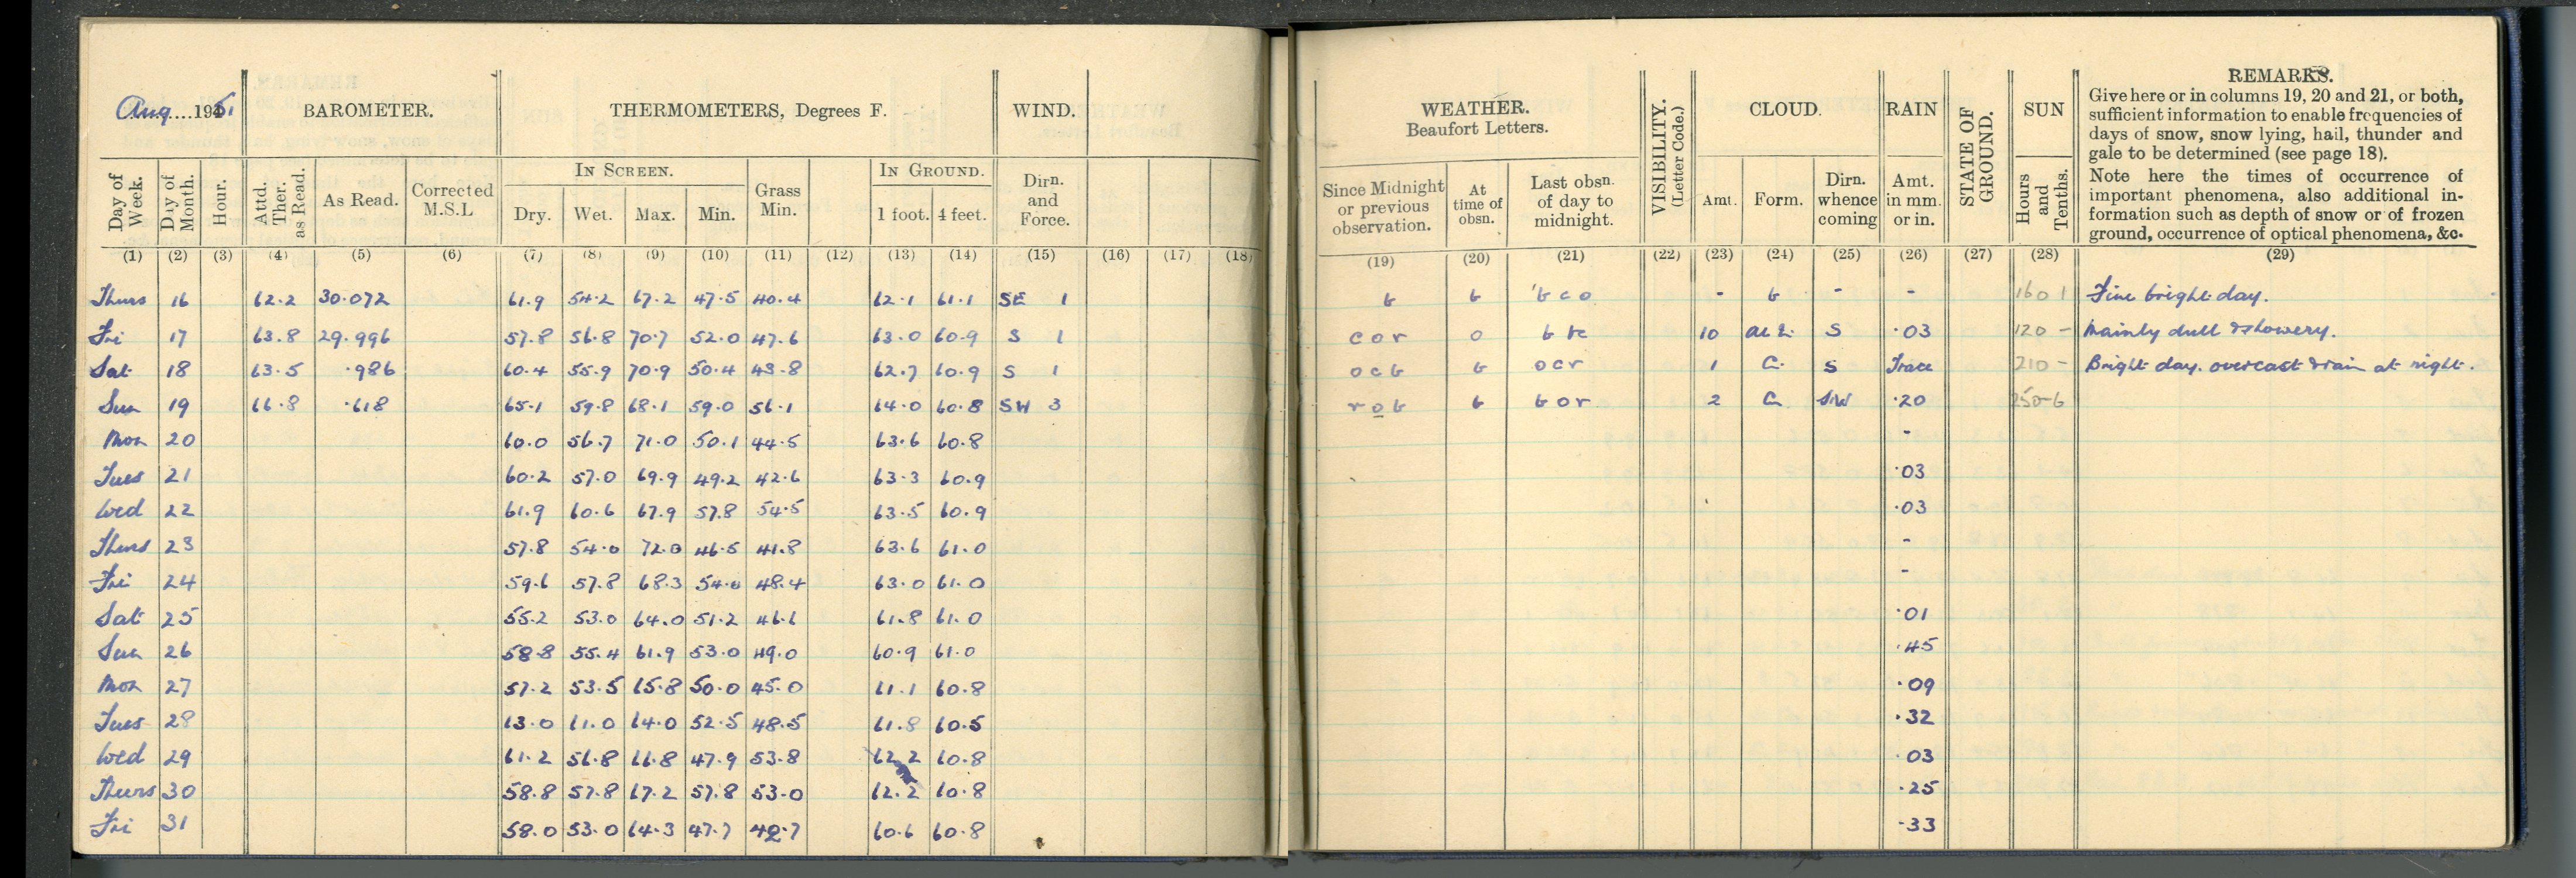 Aug....1951 BAROMETER. THERMOMETERS, Degrees F. WIND.
IN SCREEN. IN GROUND.
Day of Week. Day of Month. Hour. Attd. Ther. as Read. As Read. Corrected M.S.L Dry. Wet. Max. Min. Grass Min. 1 foot. 4 feet. Dirn. and Force.
(1) (2) (3) (4) (5) (6) (7) (8) (9) (10) (11) (12) (13) (14) (15) (16) (17) (18)
Thurs 16 62.2 30.072 61.9 54.2 67.2 47.5 40.4 62.1 61.1 SE 1
Fri 17 63.8 29.996 57.8 56.8 70.7 52.0 47.6 63.0 60.9 S 1
Sat 18 63.5 .986 60.4 55.9 70.9 50.4 43.8 62.7 60.9 S 1
Sun 19 66.8 .618 65.1 59.8 68.1 59.0 56.1 64.0 60.8 SW 3
Mon 20 60.0 56.7 71.0 50.1 44.5 63.6 60.8
Tues 21 60.2 57.0 69.9 49.2 42.6 63.3 60.9
Wed 22 61.9 60.6 67.9 57.8 54.5 63.5 60.9
Thurs 23 57.8 54.0 72.0 46.5 41.8 63.6 61.0
Fri 24 59.6 57.8 68.3 54.0 48.4 63.0 61.0
Sat 25 55.2 53.0 64.0 51.2 46.6 61.8 61.0
Sun 26 58.8 55.4 61.9 53.0 49.0 60.9 61.0
Mon 27 57.2 53.5 65.8 50.0 45.0 61.1 60.8
Tues 28 63.0 61.0 64.0 52.5 48.5 61.8 60.5
Wed 29 61.2 56.8 66.8 47.9 53.8 62.2 60.8
Thurs 30 58.8 57.8 67.2 57.8 53.0 62.2 60.8
Fri 31 58.0 53.0 64.3 47.7 42.7 60.6 60.8
WEATHER. Beaufort Letters. VISIBILITY. (Letter Code.) CLOUD. RAIN STATE OF GROUND. SUN REMARKS.
Give here or in columns 19, 20 and 21, or both,
sufficient information to enable frequencies of
days of snow, snow lying, hail, thunder and
gale to be determined (see page 18).
Note here the times of occurrence of
important phenomena, also additional in-
formation such as depth of snow or of frozen
ground, occurrence of optical phenomena, &c.
Since Midnight or previous observation. At time of obsn. Last obsn. of day to midnight. Amt. Form. Dirn. whence coming Amt. in mm. or in. Hours and Tenths.
(19) (20) (21) (22) (23) (24) (25) (26) (27) (28) (29)
b b b c o - b - - 160 1 Fine bright day.
c o r o b c 10 S .03 120 - Mainly dull & showery.
o c b b o c r 1 C. S Trace 210 - Bright day. overcast & rain at night.
r o b b b o r 2 C SW .20 250 6
-
.03
.03
-
-
.01
.45
.09
.32
.03
.25
.33